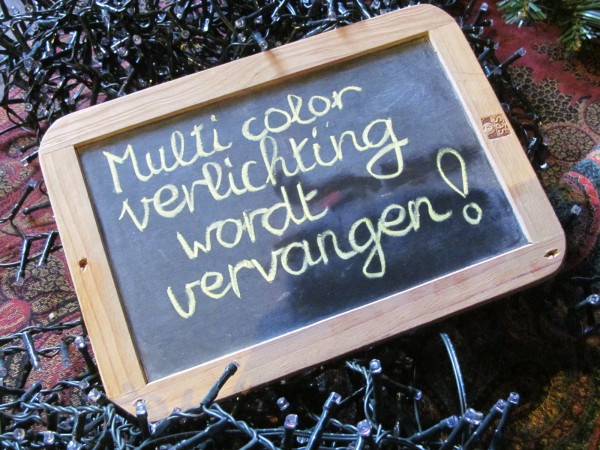 Multi color
verlichting
wordt
vervangen!